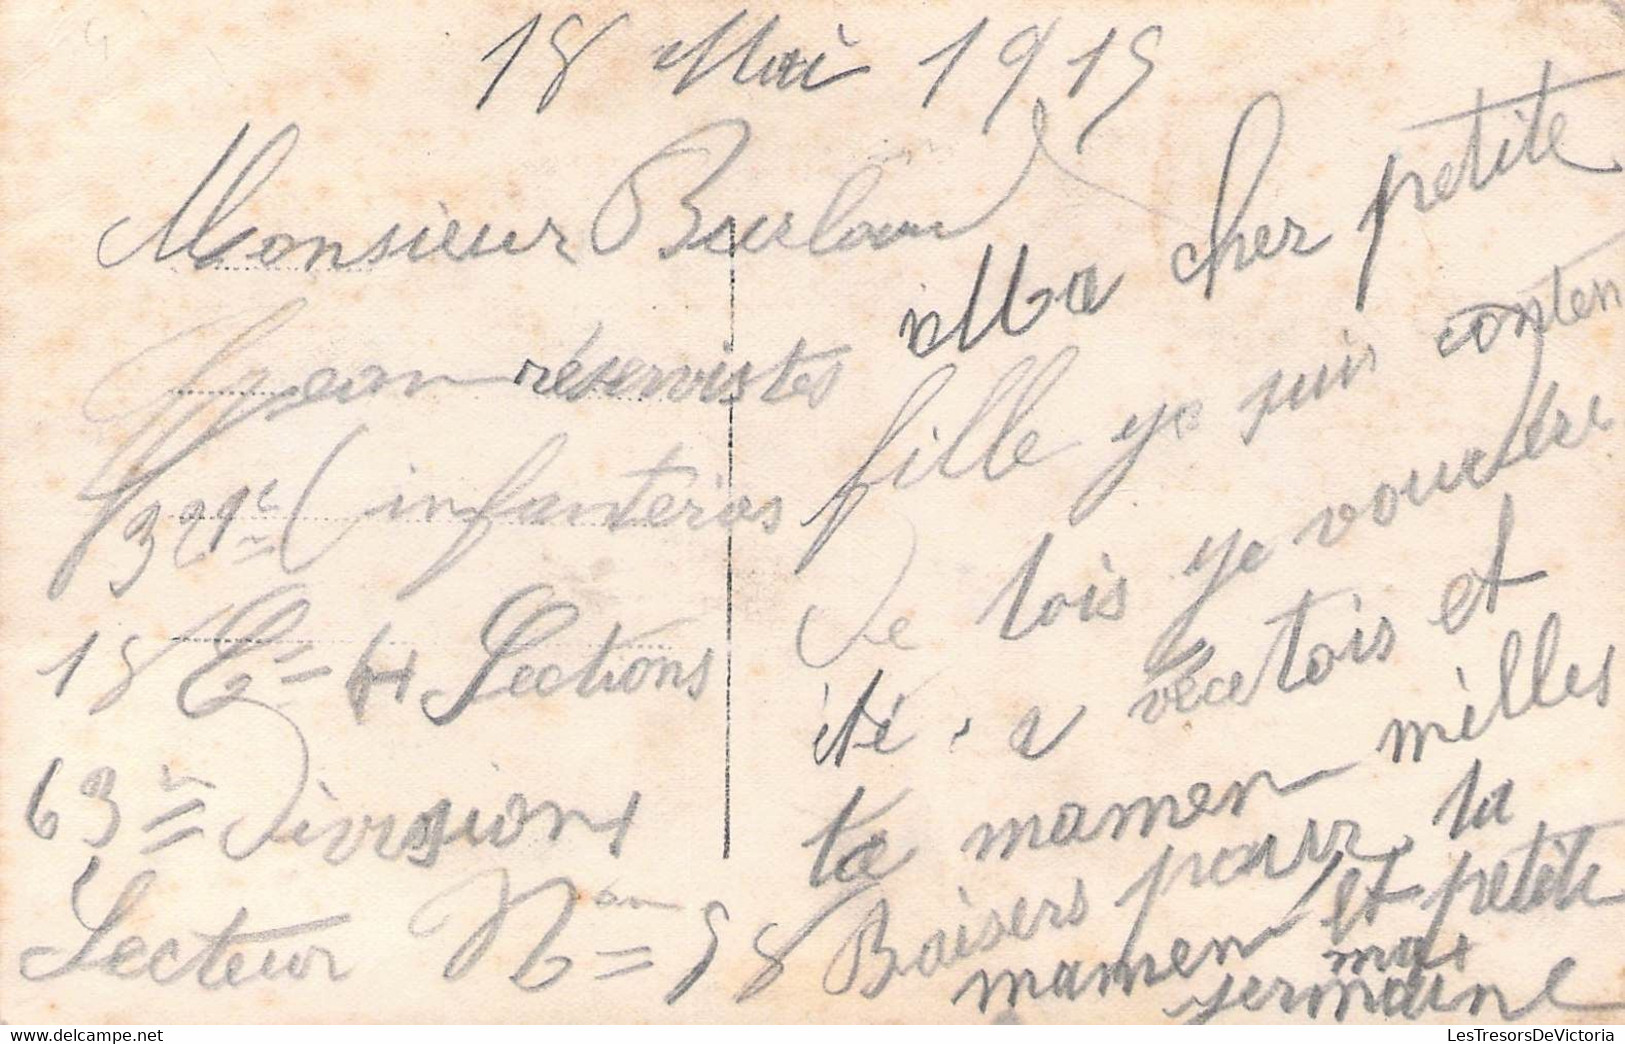 18 Mai 1915
Monsieur Burlaud
Jean réservistes
321e infanteries
18 Cie 4 Sections
63me Division
Secteur Nº = 98
Ma cher petite
fille ye suis conten
De tois ye voudre
été a vece tois et
ta mamen milles
Baisers pour ta
mamen et petite
ma germaine
LesTresorsDeVictoria